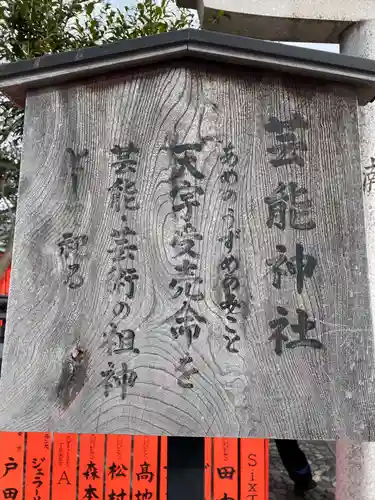 芸能神社
あめのうずめのみこと
天宇受売命を
芸能・芸術の祖神
と祀る
田本
SixT
高地
松
森本
A
ジュラー
戸